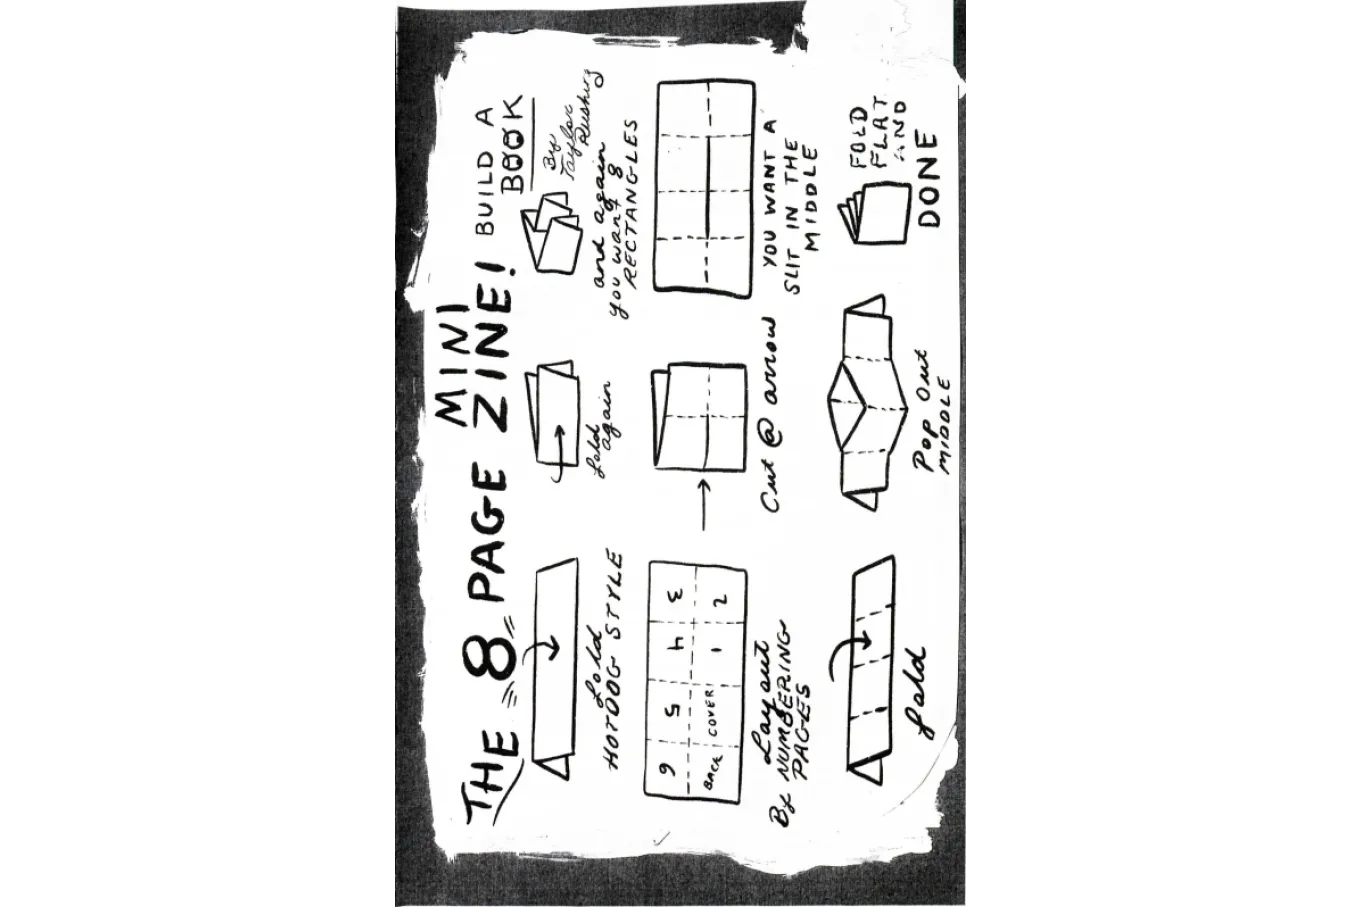 THE 8 PAGE MINI ZINE!
BUILD A
BOOK
By
Taylor
Fold
HOTDOG STYLE
fold
again
and again
you want 8
RECTANGLES
6 5 4 3
BACK COVER 1 2
Lay out
By NUMBERING
PAGES
Cut @ arrow
YOU WANT A
SLIT IN THE
MIDDLE
fold
Pop Out
MIDDLE
FOLD
FLAT
AND
DONE